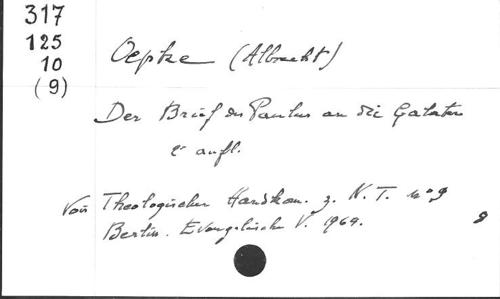 317
125
10
(9)
Oepke (Albrecht)
Der Brief des Paulus an die Galater
2e aufl.
Voir Theologischer Handkom. z. N. T. nº 9
Berlin. Evangelische V. 1964.